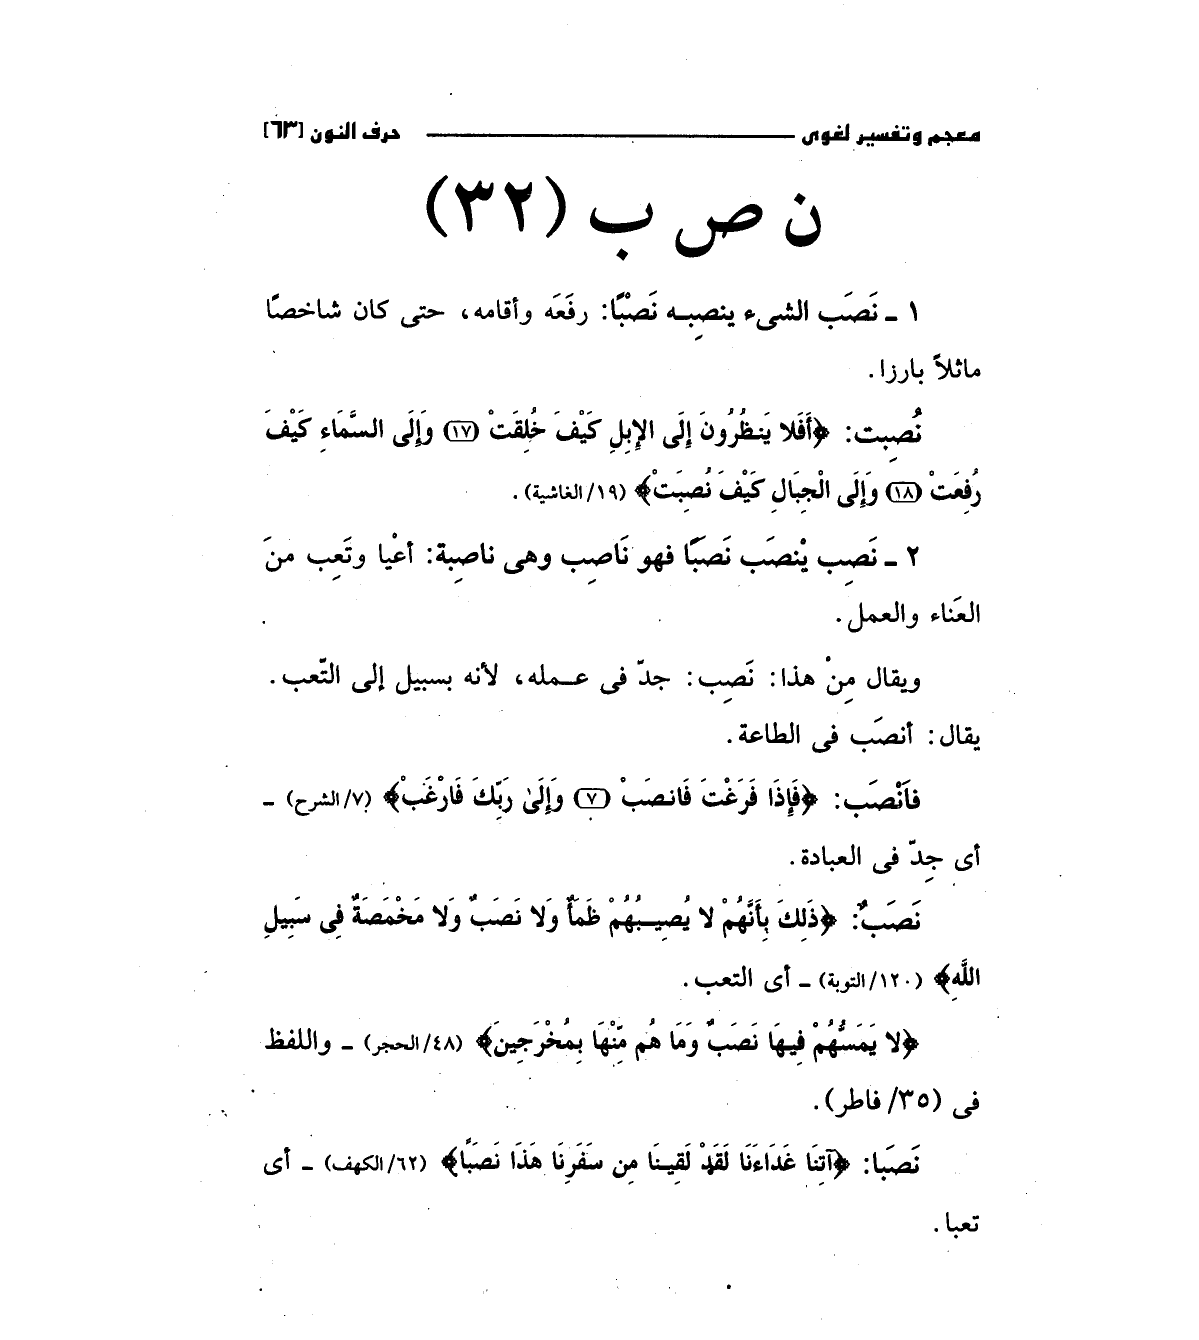 معجم وتفسير لغوى حرف النون [٦٣]
ن ص ب (٣٢)
١ ـ نَصَب الشىء ينصِبه نَصْبًا: رفَعَه وأقامه، حتى كان شاخصًا
ماثلاً بارزا.
نُصِبت: ﴿أَفَلا يَنظُرُونَ إِلَى الإِبِلِ كَيْفَ خُلِقَتْ (١٧) وَإِلَى السَّمَاءِ كَيْفَ
رُفِعَتْ (١٨) وَإِلَى الْجِبَالِ كَيْفَ نُصِبَتْ﴾ (١٩/ الغاشية).
٢ ـ نَصِب يْنصَب نَصَبًا فهو نَاصِب وهى ناصِبة: أعْيا وتَعِب منَ
العَناء والعمل.
ويقال مِنْ هذا: نَصِب: جدّ فى عمله، لأنه بسبيل إلى التّعب.
يقال: أنصَب فى الطاعة.
فاَنْصَب: ﴿فَإِذَا فَرَغْتَ فَانصَبْ (٧) وَإِلَىٰ رَبِّكَ فَارْغَبْ﴾ (٧/ الشرح) ـ
أى جِدّ فى العبادة.
نَصَبٌ: ﴿ذَلِكَ بِأَنَّهُمْ لا يُصِيبُهُمْ ظَمَأٌ وَلا نَصَبٌ وَلا مَخْمَصَةٌ فِى سَبِيلِ
اللَّهِ﴾ (١٢٠/ التوبة) ـ أى التعب.
﴿لا يَمَسُّهُمْ فِيهَا نَصَبٌ وَمَا هُم مِّنْهَا بِمُخْرَجِينَ﴾ (٤٨/ الحجر) ـ واللفظ
فى (٣٥/ فاطر).
نَصَبا: ﴿آتِنَا غَدَاءَنَا لَقَدْ لَقِينَا مِن سَفَرِنَا هَذَا نَصَبًا﴾ (٦٢/ الكهف) ـ أى
تعبا.